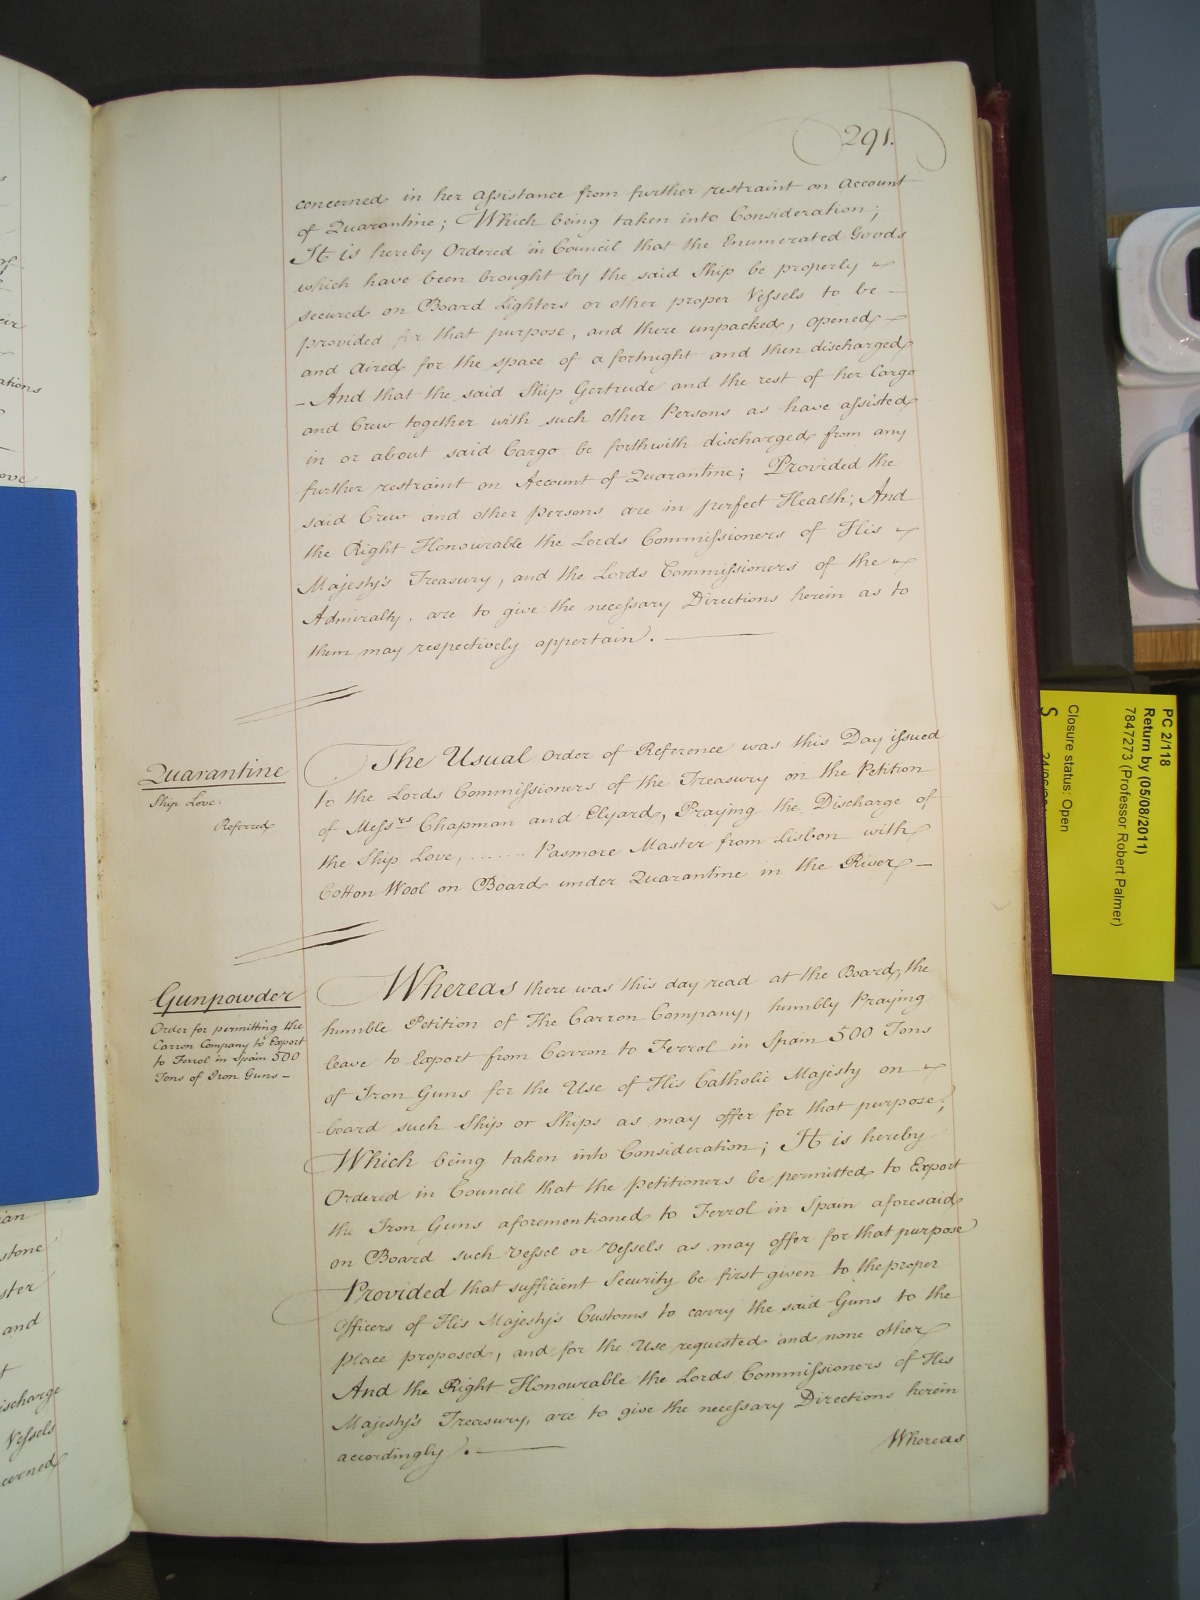 291.
concerned in her Assistance from further restraint on Account
of Quarantine; Which being taken into Consideration;
It is hereby Ordered in Council that the Enumerated Goods
which have been brought by the said Ship be properly
secured on Board Lighters or other proper Vessels to be
provided for that purpose, and there unpacked, opened
and aired for the space of a fortnight and then discharged
- And that the said Ship Gertrude and the rest of her Cargo
and Crew together with such other Persons as have assisted
in or about said Cargo be forthwith discharged from any
further restraint on Account of Quarantine; Provided the
said Crew and other Persons are in perfect Health; And
the Right Honourable the Lords Commissioners of His
Majesty's Treasury, and the Lords Commissioners of the
Admiralty, are to give the necessary Directions herein as to
them may respectively appertain.
Quarantine
Ship Love.
Referred
The Usual Order of Reference was this Day issued
to the Lords Commissioners of the Treasury on the Petition
of Messrs Chapman and Elyard, Praying the Discharge of
the Ship Love, ....... Pasmore Master from Lisbon with
Cotton Wool on Board under Quarantine in the River
Gunpowder
Order for permitting the
Carron Company to Export
to Ferrol in Spain 500
Tons of Iron Guns
Whereas there was this day read at the Board, the
humble Petition of The Carron Company, humbly Praying
leave to Export from Carron to Ferrol in Spain 500 Tons
of Iron Guns for the Use of His Catholic Majesty on
board such Ship or Ships as may offer for that purpose;
Which being taken into Consideration; It is hereby
Ordered in Council that the Petitioners be permitted to Export
the Iron Guns aforementioned to Ferrol in Spain aforesaid
on Board such Vessel or Vessels as may offer for that purpose
Provided that sufficient Security be first given to the proper
Officers of His Majesty's Customs to carry the said Guns to the
place proposed, and for the Use requested and none other
And the Right Honourable the Lords Commissioners of His
Majesty's Treasury, are to give the necessary Directions herein
accordingly.
Whereas
ations
stone
ster
and
ischarge
Vessels
cerned
PC 2/118
Return by (05/08/2011)
7847273 (Professor Robert Palmer)
Closure status: Open
S